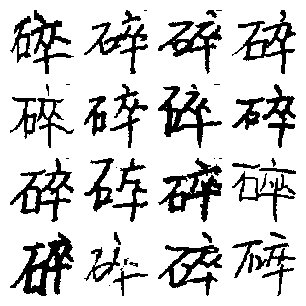 碎碎碎碎
碎碎碎碎
碎碎碎碎
碎碎碎碎